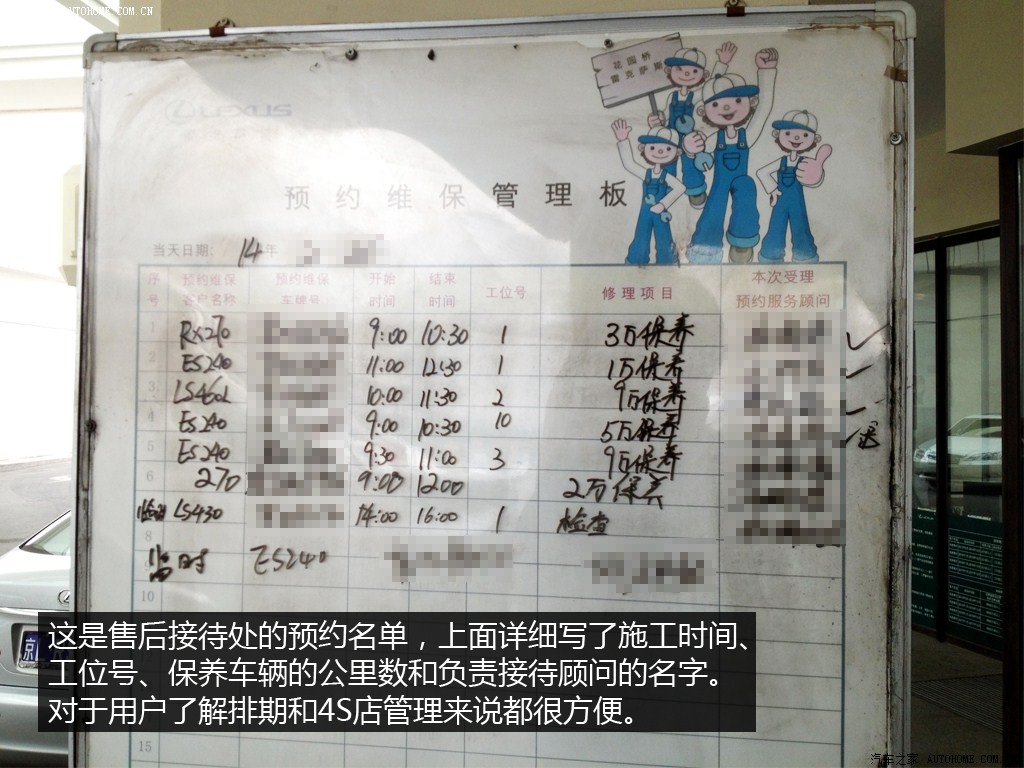 AUTOHOME.COM.CN
花园桥
雷克萨斯
LEXUS
预约维保管理板
当天日期: 14年
序号 预约维保客户名称 预约维保车牌号 开始时间 结束时间 工位号 修理项目 本次受理预约服务顾问
1 RX270 9:00 10:30 1 3万保养
2 ES240 11:00 12:30 1 1万保养
3 LS460L 10:00 11:30 2 9万保养
4 ES240 9:00 10:30 10 5万保养
5 ES240 9:30 11:00 3 9万保养
6 270 9:00 12:00 2万保养
临时 LS430 14:00 16:00 1 检查
8
临时 ES240
10
这是售后接待处的预约名单，上面详细写了施工时间、
工位号、保养车辆的公里数和负责接待顾问的名字。
对于用户了解排期和4S店管理来说都很方便。
京
15
汽车之家 AUTOHOME.COM.CN